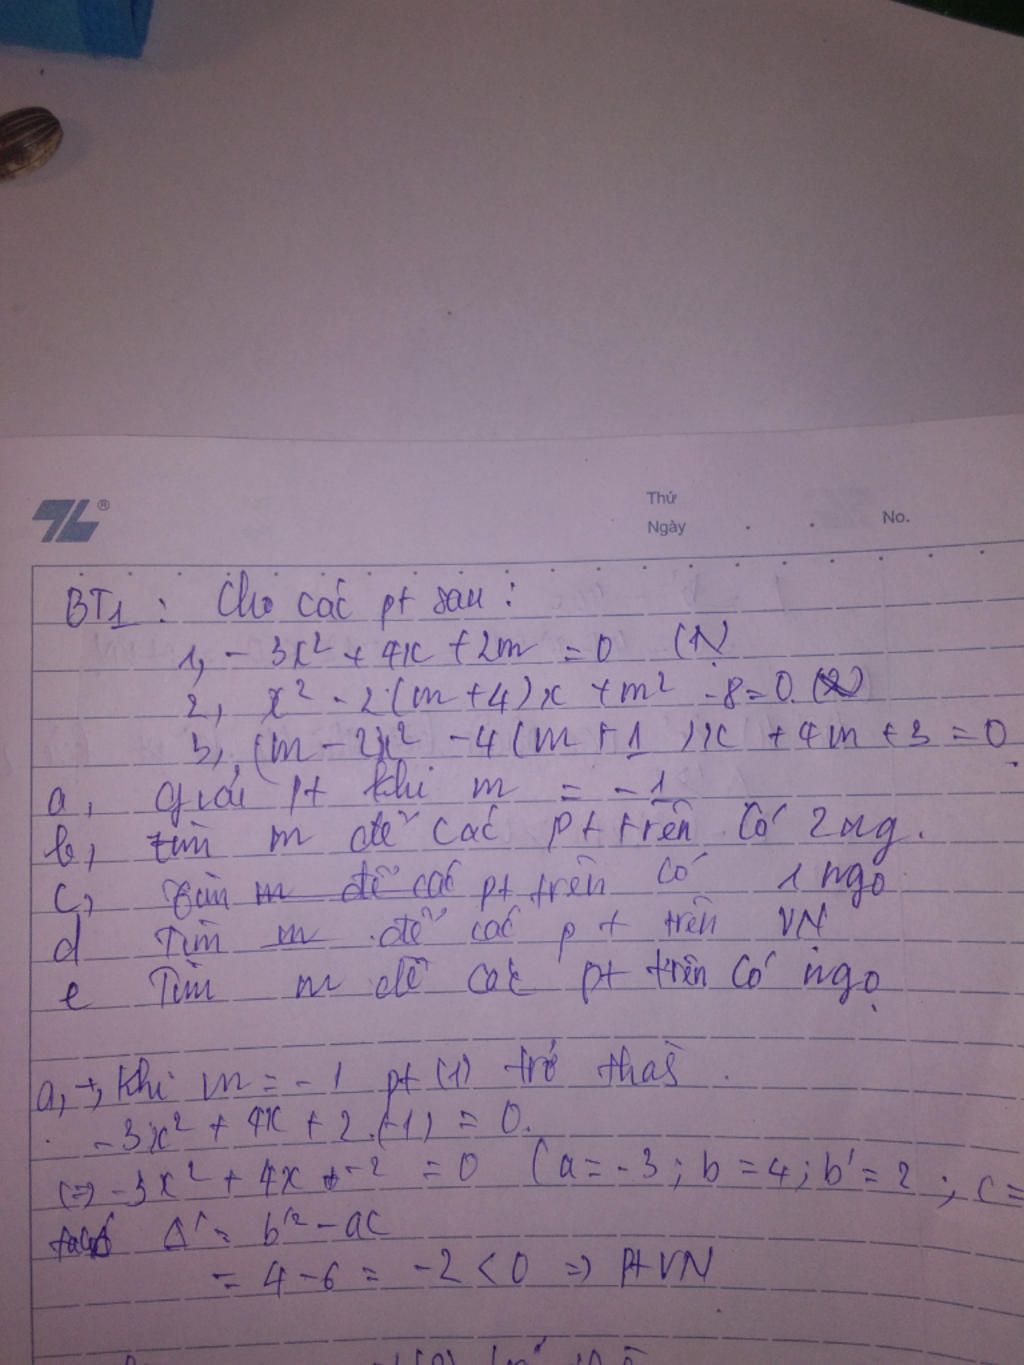 Thứ
Ngày . . No.
BT1 : Cho các pt sau :
1, - 3x² + 4x + 2m = 0 (1)
2, x² - 2(m+4)x + m² - 8 = 0.
3, (m - 2)x² - 4(m + 1)x + 4m + 3 = 0.
a, giải pt khi m = -1
b, tìm m để các pt trên có 2 ng.
c, tìm m để các pt trên có 1 ngo
d Tìm m để các pt trên VN
e Tìm m để các pt trên có ngo
a, +, khi m = -1 pt (1) trở
-3x² + 4x + 2.(-1) = 0.
(=) -3x² + 4x + -2 = 0 (a = -3 ; b = 4 ; b' = 2 ; c =
Δ' = b'² - ac
= 4 - 6 = -2 < 0 => Pt VN